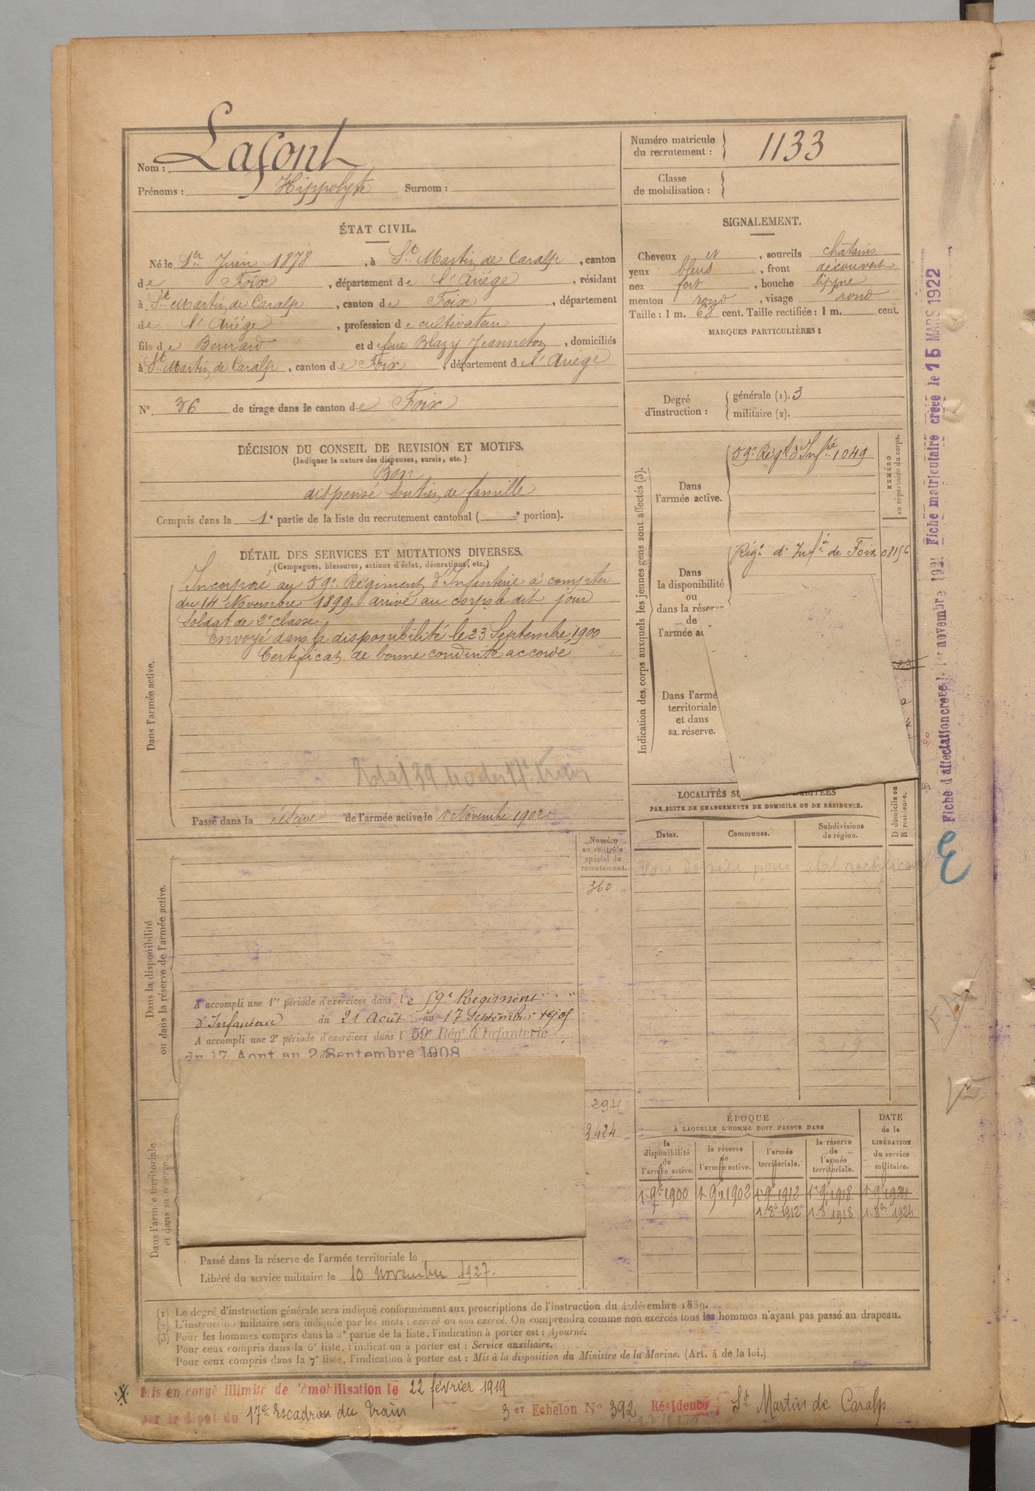 Nom : Lafont
Prénoms : Hippolyte Surnom :
Numéro matricule
du recrutement : 1133
Classe
de mobilisation :
ÉTAT CIVIL.
Né le 1er Juin 1878, à St Martin de Caralp, canton
de Foix, département de l'Ariège, résidant
à St Martin de Caralp, canton de Foix, département
de l'Ariège, profession de cultivateur
fils de Bernard et de feue Blazy Jeanneton, domiciliés
à St Martin de Caralp, canton de Foix, département de l'Ariège
N° 36 de tirage dans le canton de Foix
SIGNALEMENT.
Cheveux et, sourcils châtains
yeux bleus, front découvert
nez fort, bouche
menton rond, visage rond
Taille : 1 m. 68 cent. Taille rectifiée : 1 m. cent.
MARQUES PARTICULIÈRES :
Degré
d'instruction :
générale (1). 3
militaire (2).
DÉCISION DU CONSEIL DE REVISION ET MOTIFS.
(Indiquer la nature des dispenses, sursis, etc.)
Bon
dispensé soutien de famille
Compris dans la 1e partie de la liste du recrutement cantonal ( e portion).
DÉTAIL DES SERVICES ET MUTATIONS DIVERSES.
(Campagnes, blessures, actions d'éclat, décorations, etc.)
Dans l'armée active.
Incorporé au 59e Régiment d'Infanterie à compter
du 14 Novembre 1899 arrivé au corps le dit jour
Soldat de 2e classe
Envoyé dans la disponibilité le 23 Septembre 1900
Certificat de bonne conduite accordé
Passé dans la réserve de l'armée active le 1 Novembre 1902
Indication des corps auxquels les jeunes gens sont affectés (3).
Dans
l'armée active.
59e Régt d'Infie 1049
NUMÉRO
au répertoire du corps.
Dans
la disponibilité
ou
dans la réserve
de
l'armée
Régt d'Infie de Foix
Dans l'armé
territoriale
et dans
sa réserve.
LOCALITÉS
PAR SUITE DE CHANGEMENTS DE DOMICILE OU DE RÉSIDENCE.
Dates.
Communes.
Subdivisions
de région.
D domicile ou
R résidence.
Dans la disponibilité
ou dans la réserve de l'armée active.
Numéro
au contrôle
spécial du
recrutement.
360
A accompli une 1re période d'exercices dans le 59e Régiment
d'Infanterie du 21 Août au 17 Septembre 1905
A accompli une 2e période d'exercices dans l 59e Rég. d'Infanterie
du 17 Aout au Septembre 1908
294
Dans l'armée territoriale
et dans sa réserve
ÉPOQUE
À LAQUELLE L'HOMME DOIT PASSER DANS
DATE
de la
LIBÉRATION
du service
militaire.
la
disponibilité
de
l'armée active.
la réserve
de
l'armée active.
l'armée
territoriale.
la réserve
de
l'armée
territoriale.
1 9bre 1900 1 9bre 1902 1 9bre 1912 1 9bre 1918 1 9bre 1924
1 8bre 1912 1 8bre 1918 1 8bre 1924
Passé dans la réserve de l'armée territoriale le
Libéré du service militaire le 10 novembre 1927.
(1) Le degré d'instruction générale sera indiqué conformément aux prescriptions de l'instruction du 4 décembre 1889.
(2) L'instruction militaire sera indiquée par les mots : exercé ou non exercé. On comprendra comme non exercés tous les hommes n'ayant pas passé au drapeau.
(3) Pour les hommes compris dans la 5e partie de la liste, l'indication à porter est : Ajourné.
Pour ceux compris dans la 6e liste, l'indication à porter est : Service auxiliaire.
Pour ceux compris dans la 7e liste, l'indication à porter est : Mis à la disposition du Ministre de la Marine. (Art. 4 de la loi.)
Mis en congé illimité de démobilisation le 22 février 1919
par le dépôt du 17e Escadron du Train 3er Echelon N° 392 Résidence St Martin de Caralp
Fiche d'affectation créée le 1er novembre 1921 Fiche matriculaire créée le 15 MARS 1922